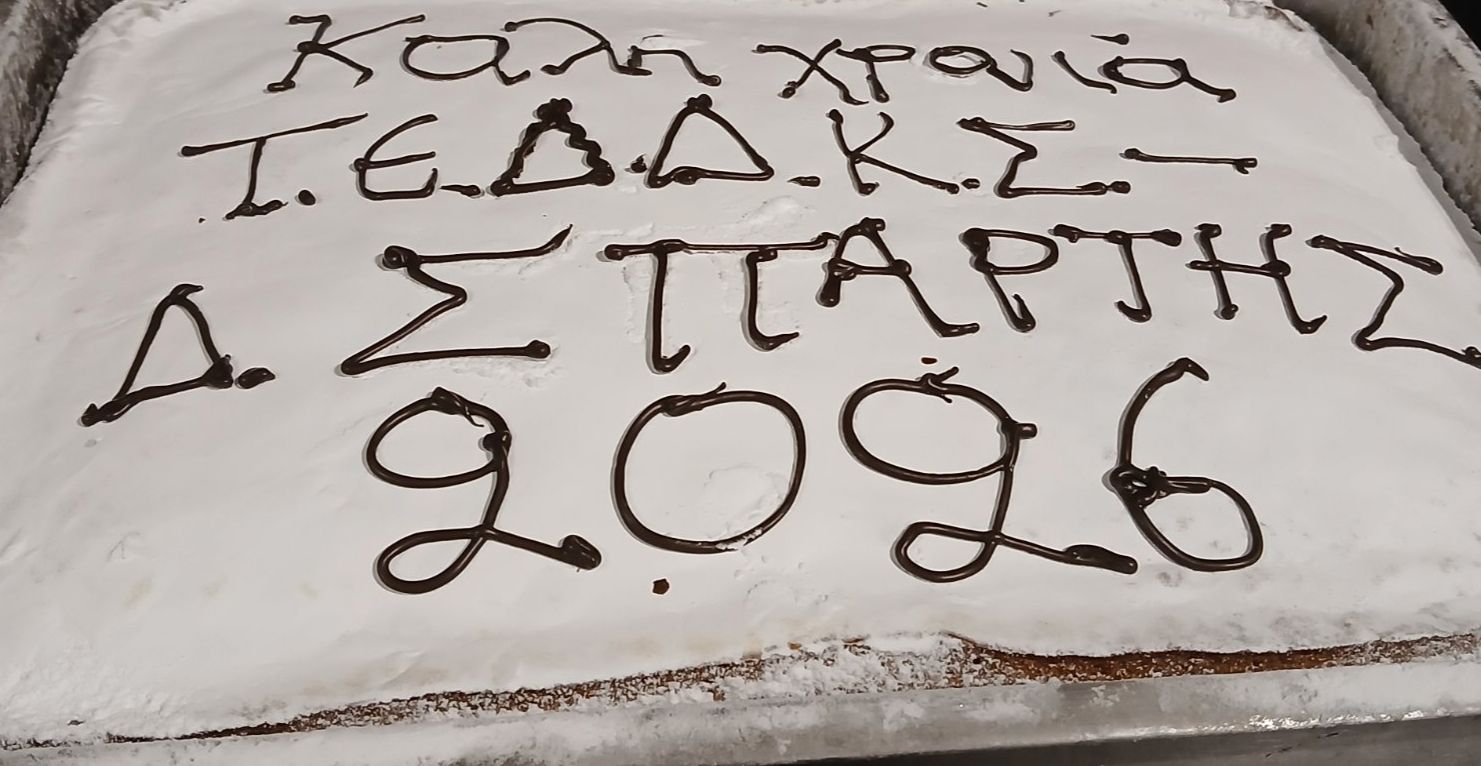 Καλη χρονιά
Τ.Ε.Δ.Δ.Κ.Σ.-
Δ. ΣΠΑΡΤΗΣ
2026